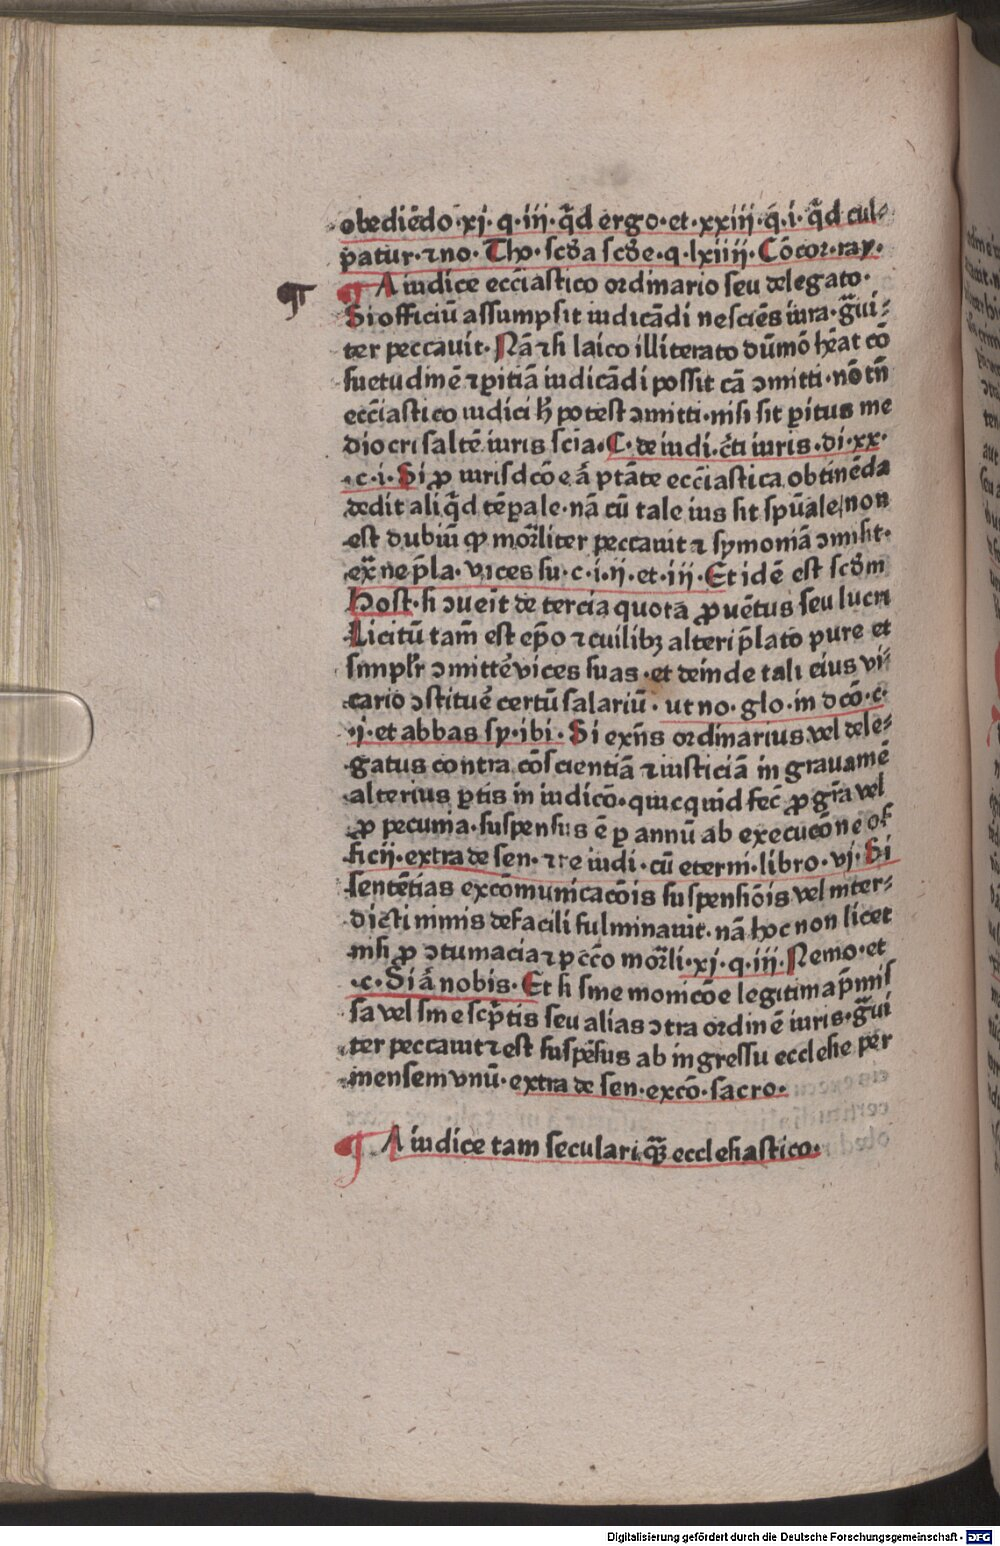 obediēdo·xj·q·iij·q̄d ergo·et·xxiij·q̄·i·q̄d cul⸗
patur·⁊no·Tho·scḋa scḋe·q·lxiiij·Cōcor·ray·
¶ A iudice ecc̄iastico ordinario seu delegato·
Si officiū assumpsit iudicādi nesciēs iura·g̃ui⸗
ter peccauit·Nā ⁊si laico illiterato dūmō hēat cō
suetudinē ⁊ꝑitiā iudicādi possit cā ɔmitti·nō tn̄
ecc̄iastico iudici hꝰ potest ɔmitti·nisi sit ꝑitus me
diocri saltē iuris scīa·C·de iudi·c̄ti iuris·di·xx·
·c·i·Si ꝓ iurisdcōe ā ptāte ecc̄iastica obtinēda
dedit aliq̄d tēꝑale·nā cū tale ius sit spūale/non
est dubiū ꝙ mor̄liter peccauit ⁊ symoniā ɔmisit·
ex̄ ne p̄la·vices su·c·i·ij·et·iij·Et idē est scḋm
Host·si ɔueīt de tercia quota ꝓuētus seu lucri
Licitū tam̄ est ep̄o ⁊ cuilibꝫ alteri p̄lato pure et
simpl̄r ɔmittē vices suas·et deinde tali eius vi⸗
cario ɔstituē certū salariū·ut no·glo·in dcō·c·
·j·et abbas sy·ibi·Si exn̄s ordinarius vel dele⸗
gatus contra cōscientiā ⁊ iusticiā in grauamē
alterius ꝑtis in iudicō·quicquid fec̄ ꝓ gr̄a vel
ꝓ pecunia·suspensus ē ꝑ annū ab execucōne of
ficij·extra de sen·⁊ re iudi·cū eterni·libro·vj·Si
sentētias excōmunicacōis suspensiōis vel inter⸗
dicti nimis defacili fulminauit·nā hoc non licet
nisi ꝓ ɔtumacia ⁊ pccō mor̄li·xj·q·iij·Nemo·et
·c·Si ā nobis·Et si sine monicōe legitima p̄mis
sa vel sine scp̄tis seu alias ɔtra ordinē iuris·g̃ui
ter peccauit ⁊ est suspēsus ab ingressu ecclesie per
mensem vnū·extra de sen·excō·sacro·
¶ A iudice tam seculari q̄ȝ ecclesiastico·
Digitalisierung gefördert durch die Deutsche Forschungsgemeinschaft - DFG